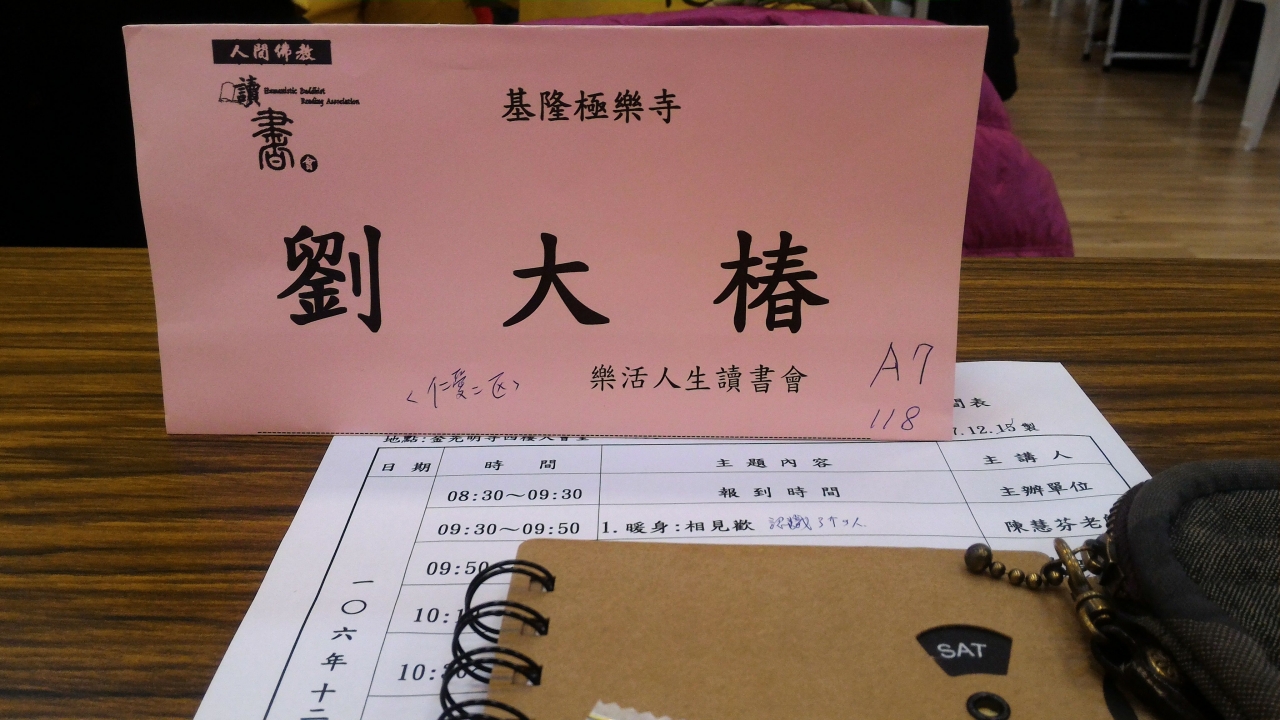 人間佛教
讀 Humanistic Buddhist
Reading Association
書 會
基隆極樂寺
劉 大 椿
〈仁愛二区〉
樂活人生讀書會
A7
118
間表
地點:金光明寺四樓大會堂
7.12.15 製
日 期 時 間 主題內容 主講人
08:30～09:30 報到時間 主辦單位
09:30～09:50 1.暖身:相見歡 認識3个9人 陳慧芬老
09:50
10:1
10:
一〇六年十二
SAT